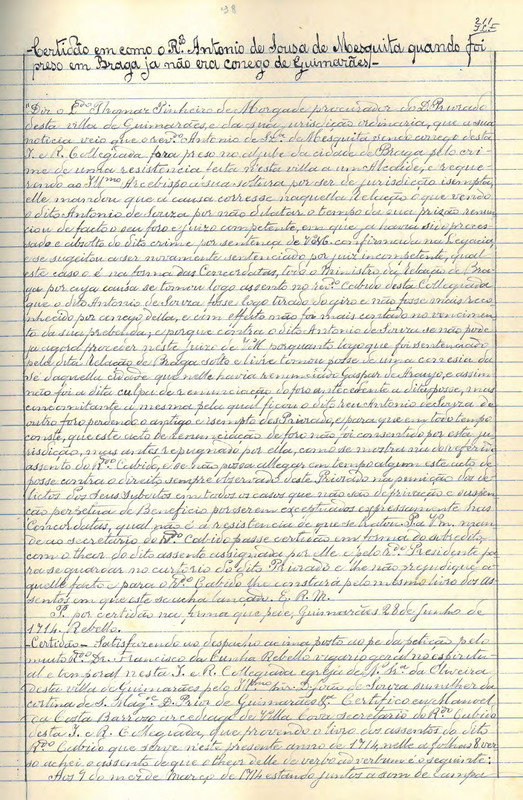 -Certidão em como o R.do Antonio de Sousa de Mesquita quando foi
preso em Braga ja não era conego de Guimarães-
"Diz o L.do Thomaz Pinheiro de Morgade procurador do D. Priorado
desta villa de Guimarães, e da sua jurisdição ordinaria, que a sua
noticia veio que o rev.do Antonio de Sz.a de Mesquita sendo conego desta
I. e R. Collegiada fora preso no aljube da cidade de Braga pelo cri-
me de unha resistencia feita nesta villa a um Alcaide, e reque-
rendo ao Ill.mo Arcebispo a sua soltura por ser de jurisdição isempta,
elle mandou que a causa corresse naquella Relação o que vendo
o dito Antonio de Souza por não dilatar o tempo da sua prizão renun-
ciou de facto o seu foro e juizo competente, em que ja havia sido proces-
sado e absolto do dito crime por sentença de confirmada na Legacia,
e se sugeitou a ser novamente sentenciado por juiz incompetente, qual
este caso o é na forma das Concordatas, todo o Ministro da Relação de Bra-
ga por cuja causa se tomou logo assento no rev.do Cabido desta Collegiada
que o dito Antonio de Souza fosse logo tirado do giro e não fosse mais reco-
nhecido por conego della, e com effeito não foi mais contado no vencimen-
to da sua prebenda, e porque contra o dito Antonio de Souza se não pode
ja agora proceder neste juizo de porquanto logo que foi sentenciado
pela dita Relação de Braga solto e livre tomou posse de uma conesia da
sé daquella cidade que nelle havia renunciado Gaspar de Araujo, e assim
não foi a dita culpa de renunciação do foro antecedente a dita posse, mas
concomitante á mesma pela qual ficou o dito reu Antonio de Souza de
outro foro perdendo o antigo e isempto do Priorado, e para que em todo tempo
conste, que este acto de renunciação de foro não foi consentido por esta ju-
risdição, mas antes repugnado por ella, como se mostra no referido
assento do R.do Cabido, e se não possa allegar em tempo algum este acto de
posse contra o direito sempre observado deste Priorado na punição dos de-
lictos dos seus subditos em todos os casos que não são de privação e suspen-
ção perpetua de Beneficio por serem exceptuados expressamente nas
Concordatas, qual não é a resistencia de que se tratou. P. a V. m. man-
de ao secretario do R.do Cabido passe certidão em forma do
com o theor do dito assento assignada por elle e pelo R.do Presidente pa-
ra se guardar no cartorio do dito Priorado e lhe não prejudique a-
quelle facto e para o R.do Cabido lhe constará pelo mesmo livro dos as-
sentos em que este se acha lançado. E. R. M.
P. por certidão na forma que pede, Guimarães 28 de Junho de
1714. Rebello.
-Certidão- Satisfazendo ao despacho acima posto ao pé da petição pelo
muito R.do Dr. Francisco da Cunha Rebello vigario geral no espiritu-
al e temporal nesta I. e R. Collegiada egreja de N.a Sr.a da Oliveira
desta villa de Guimarães pelo Ill.mo snr. de Souza sumilher da
cortina de S. Mag.de D. Prior de Guimarães &. Certifico eu Manoel
da Costa Barrozo arcediago de Villa Cova secretario do R.do Cabido
desta I. e R. Collegiada, que provendo o livro dos assentos do dito
R.do Cabido que serve n'este presente anno de 1714, nelle a folhas 8 ver-
so achei o assento de que o theor delle de verbo ad verbum é o seguinte:
Aos 9 do mez de março de 1714 estando juntos a som de campa